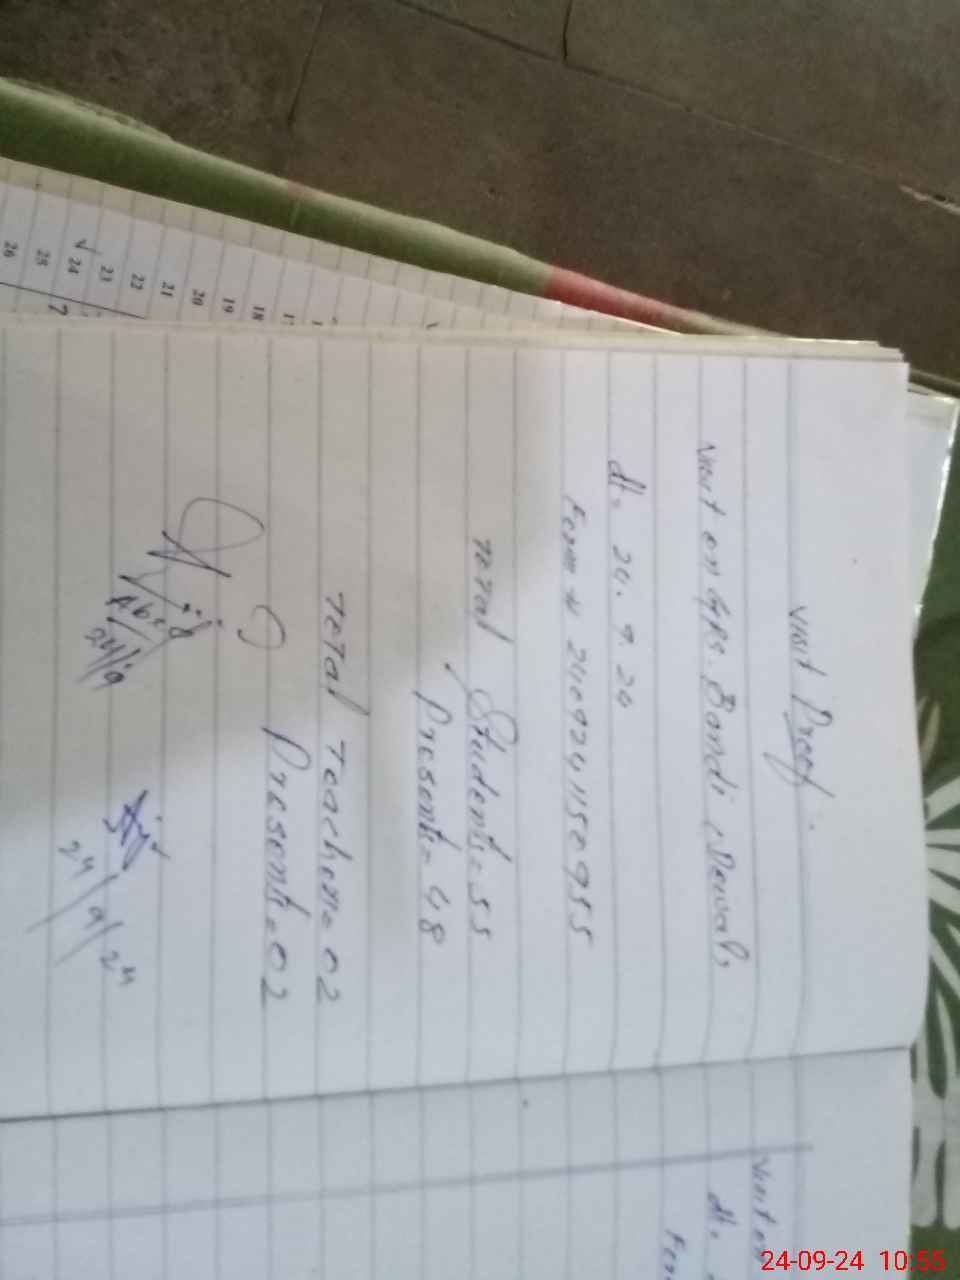 Visit Proof :
Visit on GPS. Bandi (Dewal)
dt- 24.9.24
Form # 2409241150955
Total Students = 55
Present = 48
Total Teacher = 02
Present = 02
24/9
24/9/24
Visit on
dt-
26 25 24 23 22 21 20 19 18
24-09-24 10:55